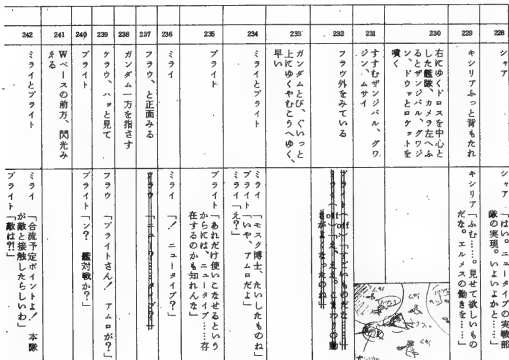 228
シャア
シャア「はい。ニュータイプの実戦部
隊の実現。いよいよかと……」
229
キシリアふっと背もたれ
キシリア「ふむ……。見せて欲しいもの
だな。エルメスの働きを……」
230
右にゆくドロスを中心と
した艦隊、カメラ左へふ
るとザンジバル、グワジ
ン、ドウッとロケットを
噴く
231
すすむザンジバル、グワ
ジン、ムサイ
232
フラウ外をみている
233
ガンダムとび、ぐいっと
上にゆくやむこうへゆく、
早い
234
ミライとブライト
ミライ「モスク博士、たいしたものね」
ブライト「いや、アムロだよ」
ミライ「え?」
235
ブライト
ブライト「あれだけ使いこなせるという
からには、ニュータイプ……存
在するのかも知れんな」
236
ミライ
ミライ「! ニュータイプ?」
237
フラウ、と正面みる
フラウ「ニュー?……タイプ?」
238
ガンダム一方を指さす
239
フラウ、ハッと見て
フラウ「ブライトさん! アムロが?」
240
ブライト
ブライト「ン? 艦対戦か?」
241
Wベースの前方、閃光み
える
242
ミライとブライト
ミライ「合流予定ポイントよ! 本隊
が敵と接触したらしいわ」
ブライト「敵は?!」